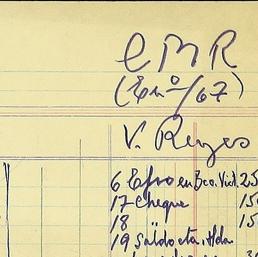 EMR
(En⁰/67)
V. Reyes
6 Efvo en Bco. Vict. 25
17 Cheque 15
18 " 15
19 Saldo cta. Hda